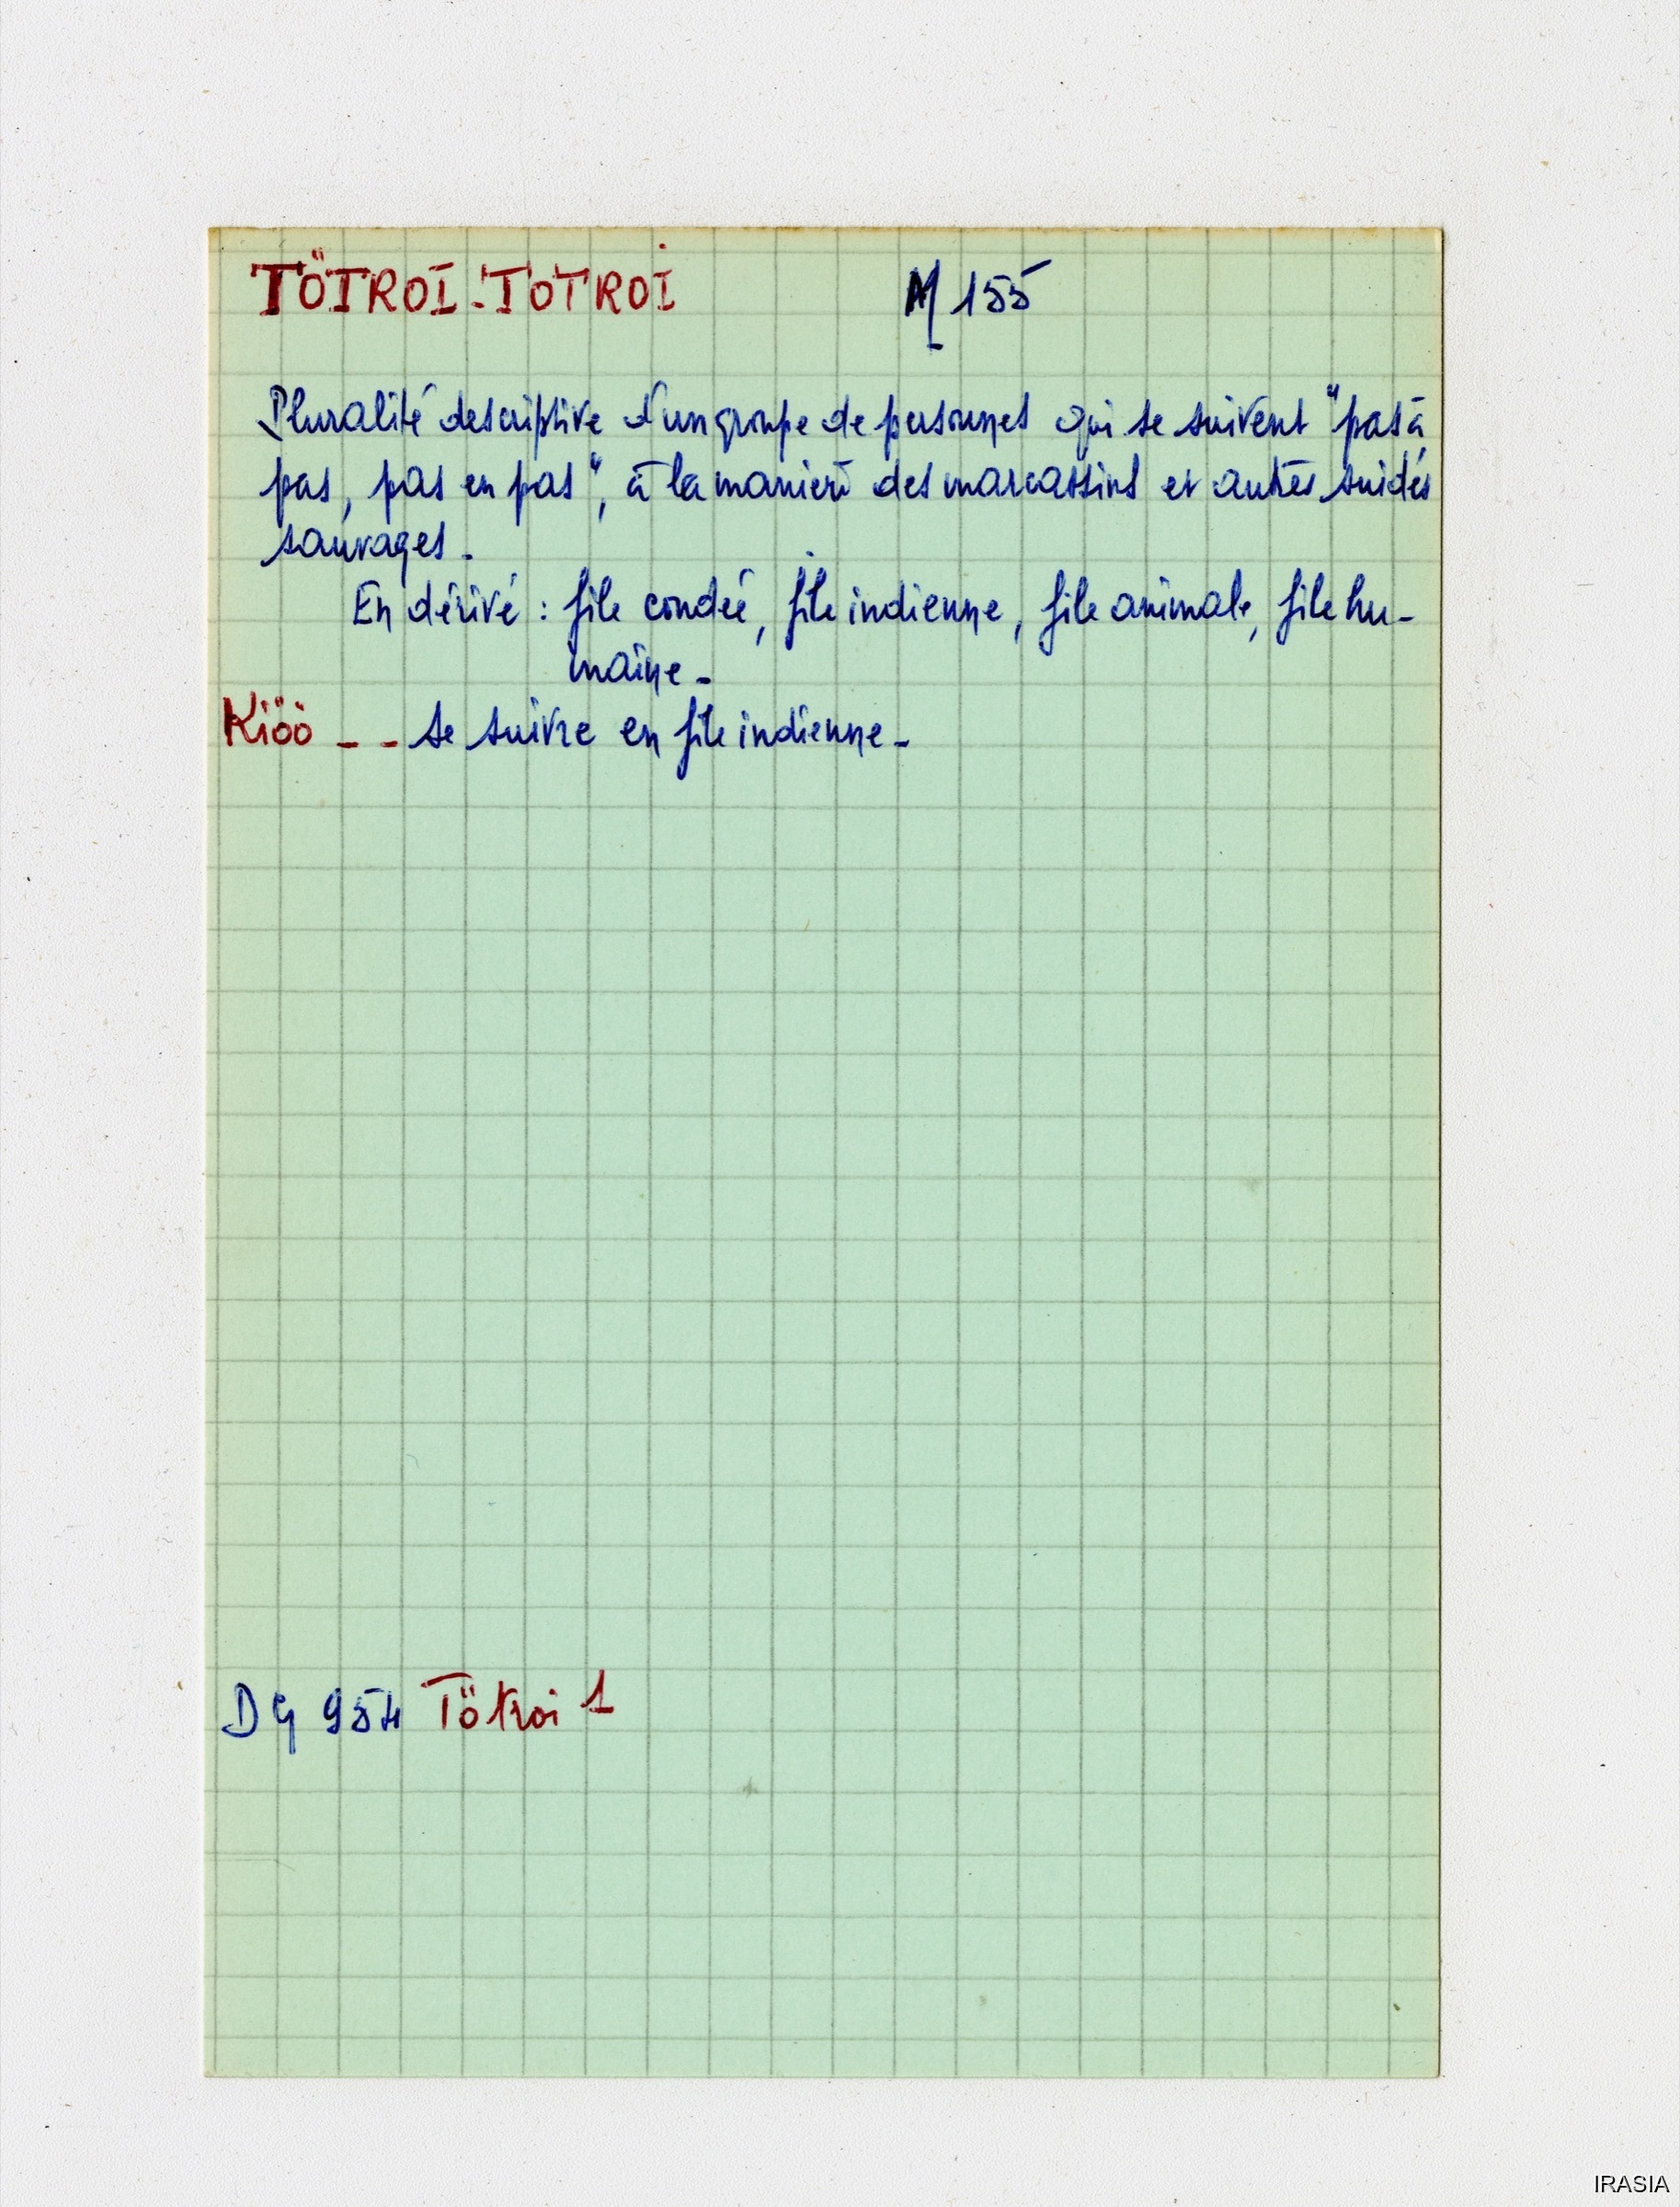 TÖTROI-TOTROI M 155
Pluralité descriptive d'un groupe de personnes qui se suivent "pas à
pas, pas en pas", à la manière des marcassins et autres suidés
sauvages.
En dérivé : file condée, file indienne, file animale, file hu-
maine.
Kiöò _ _ se suivre en file indienne.
DG 954 Tötroi 1
IRASIA